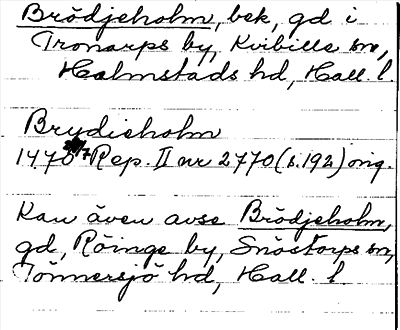 Brödjeholm, bek, gd i
Tronarps by, Kvibille sn,
Halmstads hd, Hall. l.
Brydieholm
1470 Rep. II nr 2770 (s. 192) orig.
Kan även avse Brödjeholm,
gd, Röinge by, Snöstorps sn,
Tönnersjö hd, Hall. l